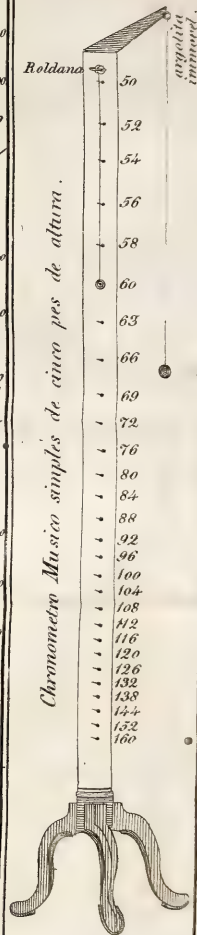 argolita
immovel.
Roldana
50
52
54
56
58
60
63
66
69
72
76
80
84
88
92
96
100
104
108
112
116
120
126
132
138
144
152
160
Chronometro Musico simples de cinco pes de altura.